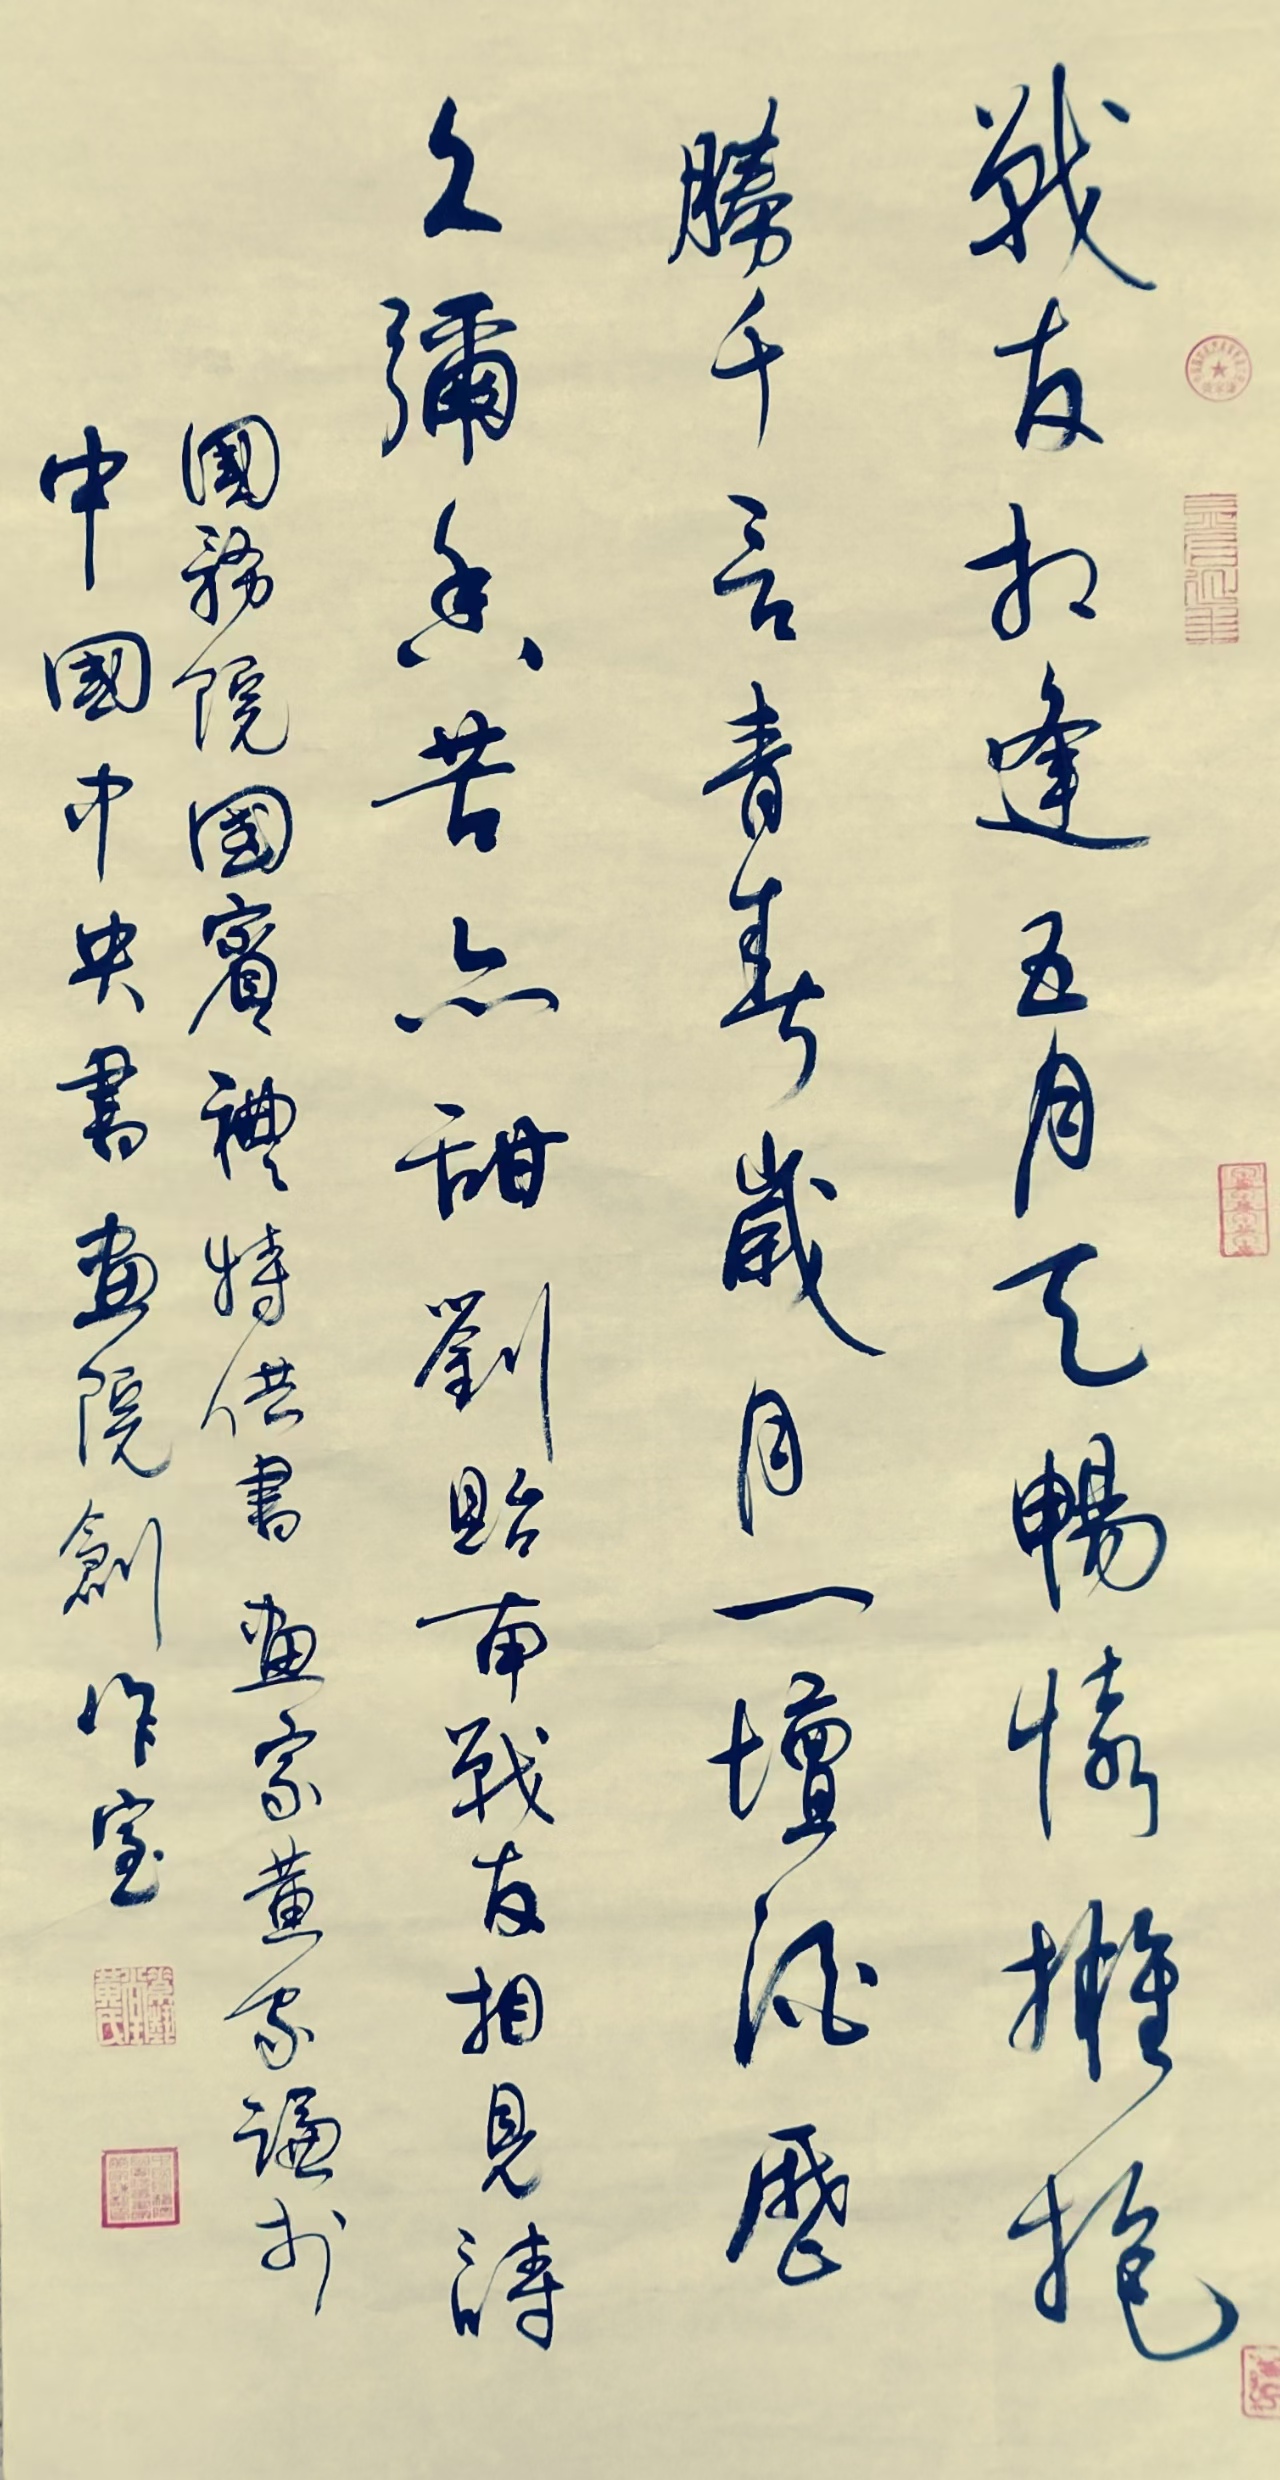 戰友相逢五月天暢懷擁抱
勝千言青春歲月一壇酒歷
久彌香苦亦甜劉貽南戰友相見詩
國務院國賓禮特供書畫家黃家謙於
中國中央書畫院創作室